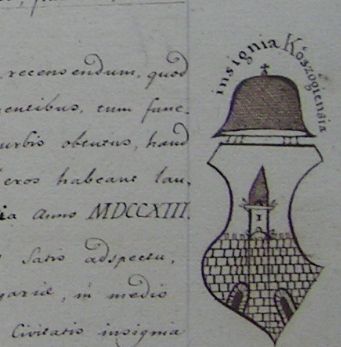 recensendum, quod
mentibus, tum fune-
urbis obtutus, haud
eros habeant lau-
ia Anno MDCCXIII.
Satis adspectu,
garie, in medio
Civitatis insignia
insignia Kószogiensia